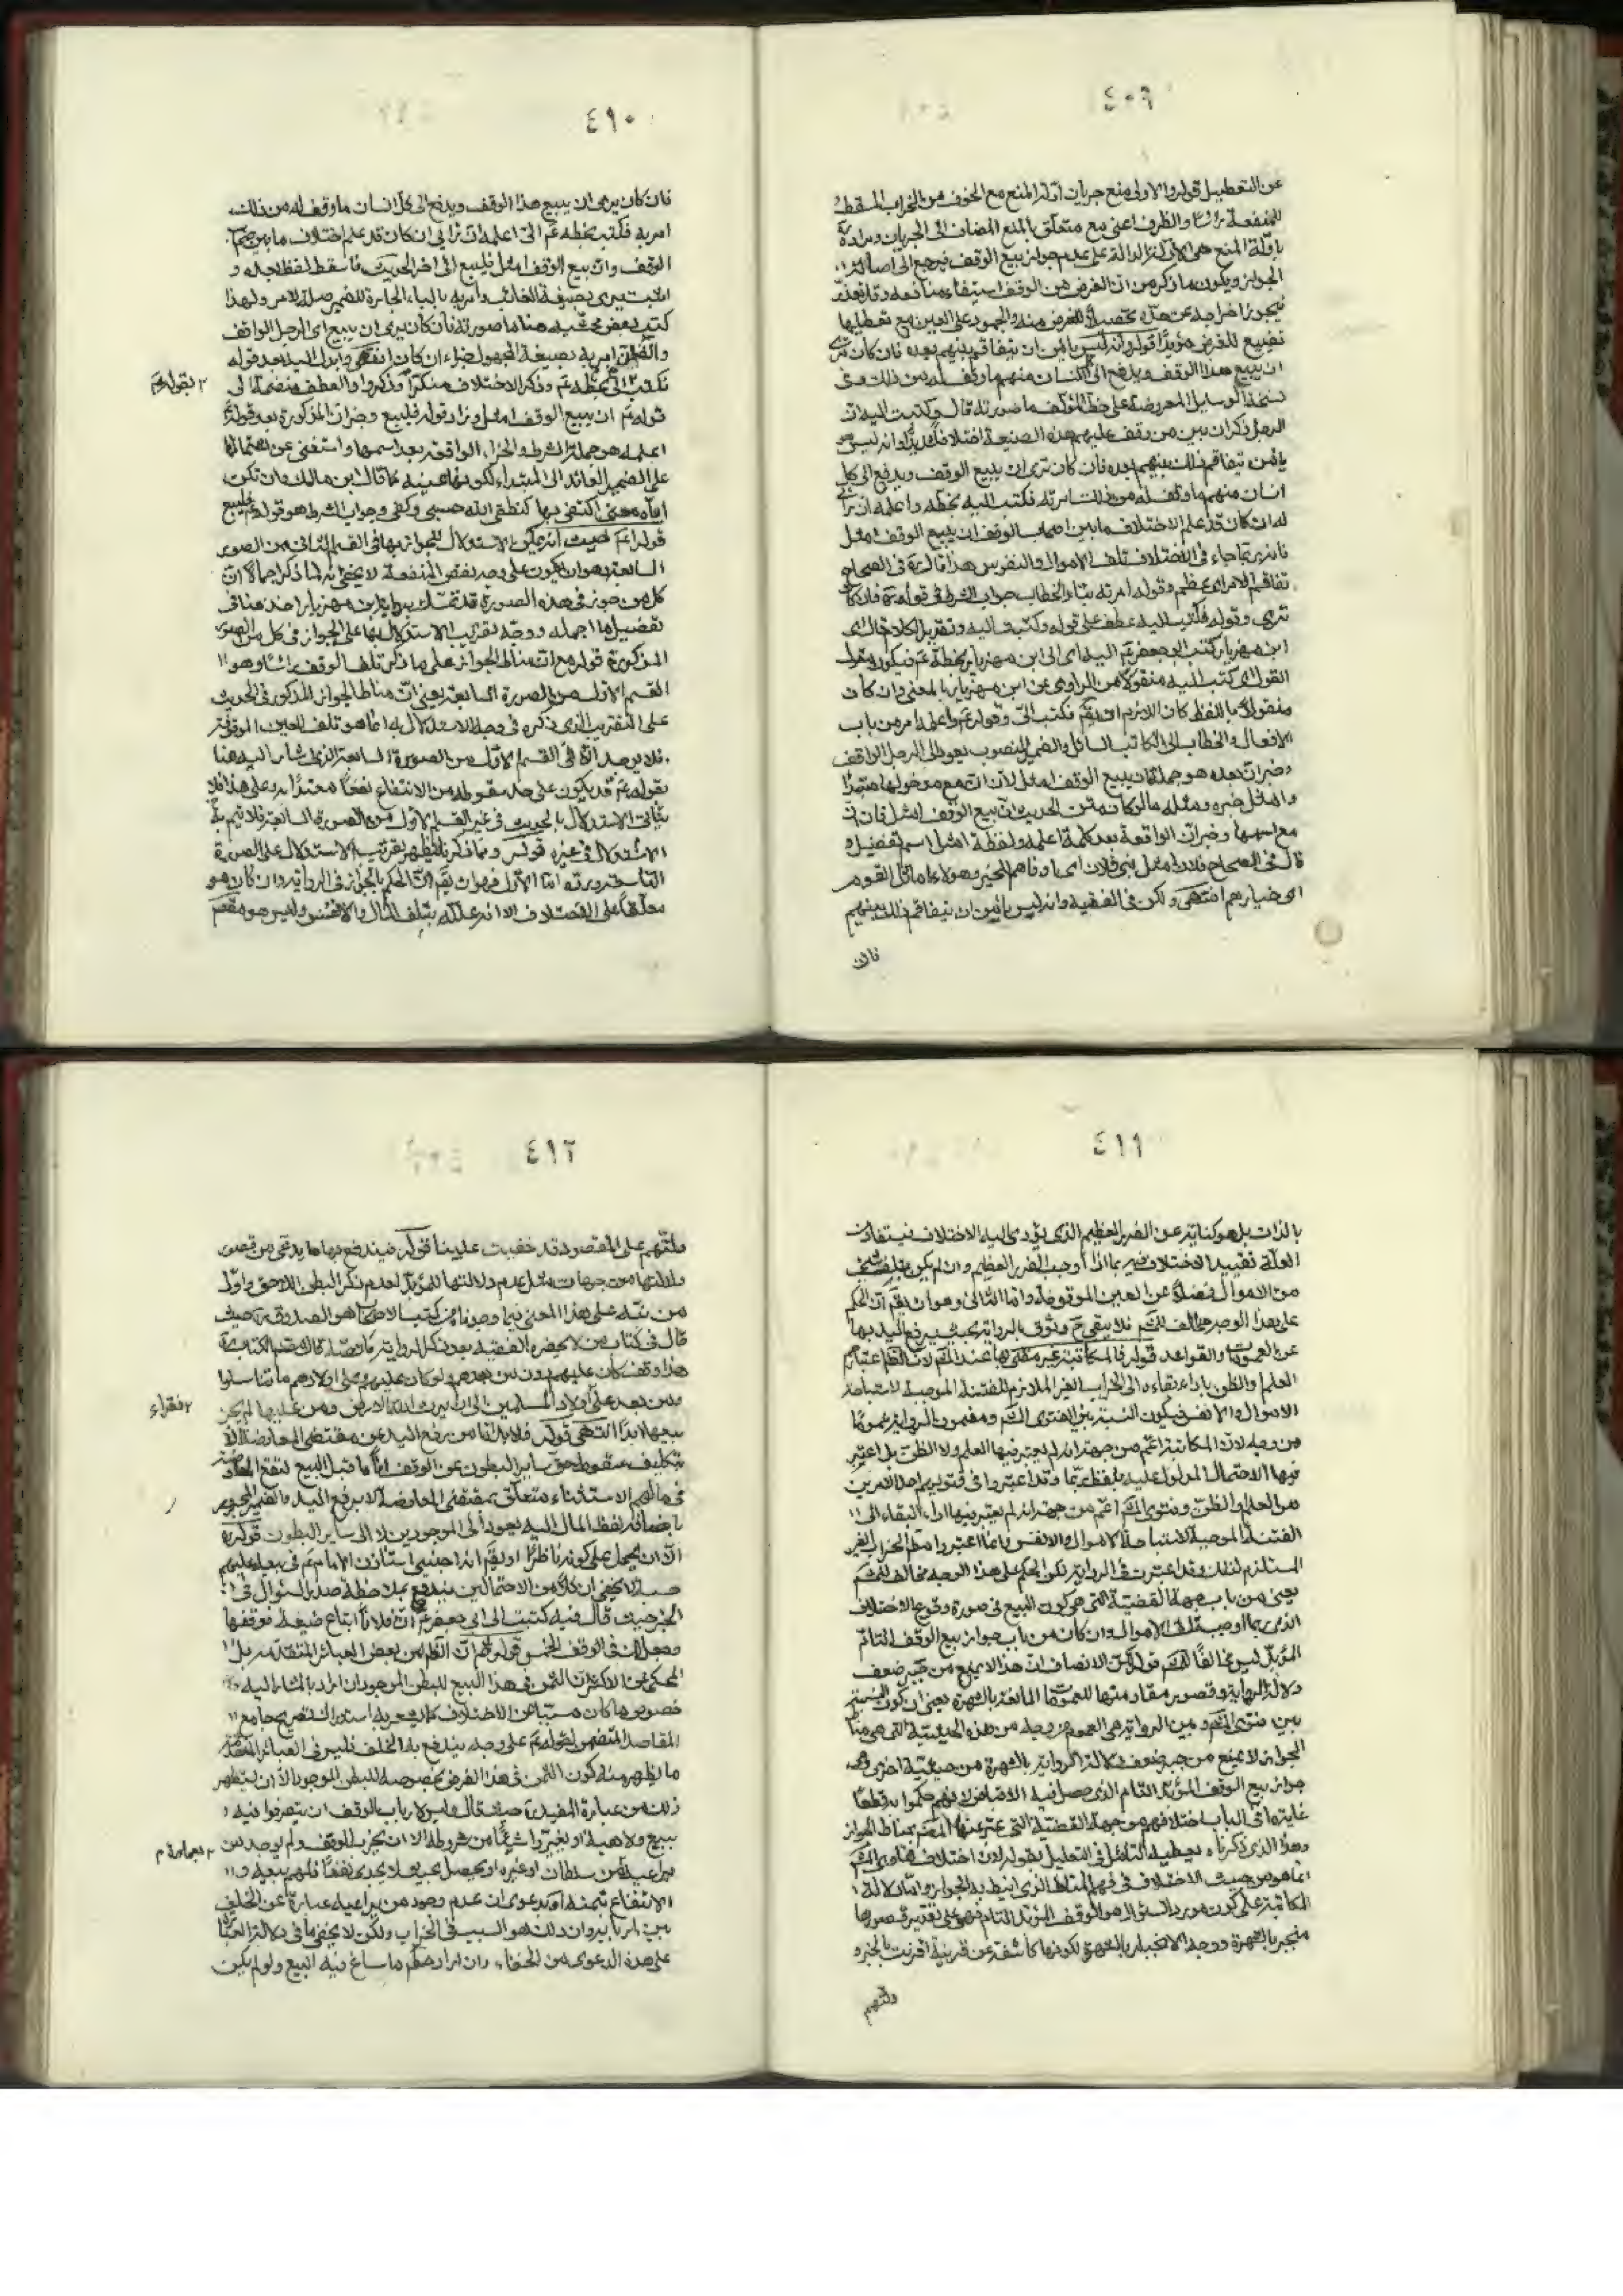 ٤٠٩
عن التعطيل قوله والاولى منع جريان ادلة المنع مع الخوف من الخراب المسقط
للمنفعة راسا والظرف اعني مع متعلق بالمنع المضاف الى الجريان ومراده
بادلة المنع هي الادلة الدالة على عدم جواز بيع الوقف فيرجع الى اصالة
الجواز ويكون ما ذكر من ان الغرض من الوقف استيفاء منافعه وقد تعذر
فيجوز اخراجه عن حده تحصيلا للغرض منه والجمود على العين مع تعطيلها
تضييع للغرض مؤيدا قوله وانه ليس يأمن ان يتفاقم بينهم بعده فان كان ترى
ان يبيع هذا الوقف ويدفع الى كل انسان منهم ما وقف له من ذلك وفى
نسخة الوسايل المعروضة على خط المؤلف ما صورته قال وكتبت اليه ان
الرجل ذكر ان بين من وقف عليهم هذه الضيعة اختلافا شديدا وانه ليس
يأمن يتفاقم ذلك بينهم بعده فان كان ترى ان يبيع الوقف ويدفع الى كل
انسان منهم ما وقف له من ذلك امرته فكتب اليه بخطه واعلمه ان رأيي
له ان كان قد علم الاختلاف ما بين اصحاب الوقف ان يبيع الوقف امثل
فانه ربما جاء في الاختلاف تلف الاموال والنفوس هذا قال في الصحاح
تفاقم الامر اى عظم وقوله امرته بتاء الخطاب جواب الشرط في قوله فان كان
ترى وقوله فكتب اليه عطف على قوله وكتبت اليه وتقرير الكلام قال اى
ابن مهزيار كتب ابو جعفر عم اليه اى الى ابن مهزيار بخطه عم فيكون
القول اى كتب اليه منقولا من الراوى عن ابن مهزيار بالمعنى وان كان
منقولا باللفظ كان اللازم ان يقم فكتب الىّ وقوله عم واعلمه امر من باب
الافعال والخطاب الى الكاتب السائل والضمير المنصوب يعود الى الرجل الواقف
وخبر ان بعده هو جملة ان يبيع الوقف امثل لان ان مع مدخولها مبتدا
وامثل خبره ومثله ما لو كان متن الحديث وان بيع الوقف امثل فان ان
مع اسمها وخبر ان الواقعة بعد كلمة اعلمه ولفظة امثل اسم تفضيل و
قال في الصحاح فلان امثل بنى فلان اى ادناهم للخير وهولاء اماثل القوم
اى خيارهم انتهى ولكن في الفقيه وانه ليس يأمن ان يتفاقم ذلك بينهم
فان
٤١٠
فان كان يرى ان يبيع هذا الوقف ويدفع الى كل انسان ما وقف له من ذلك
امر به فكتب بخطه عم الىّ اعلمه ان رأيي ان كان قد علم اختلاف ما بينهم
الوقف وان بيع الوقف امثل فليبع الى اخر الحديث فاسقط لفظ بعده و
اثبت يرى بصيغة الغائب وامر به بالباء الجارة للضمير صلة لامر ولهذا
كتب بعض محشيه هنا ما صورته فان كان يرى ان يبيع اى الرجل الواقف
امر به بصيغة المجهول جزاء ان كان انتهى وابدل اليه بعد قوله
فكتب بالىّ بخطه عم وذكر الاختلاف منكرا وذكر واو العطف منضمة الى
٢ بقوله عم
قوله عم ان بيع الوقف امثل وزاد قوله فليبع وخبر ان المذكورة بعد قوله
اعلمه هو جملة الشرط والجزاء الواقعة بعد اسمها واستغنى عن اشتمالها
على الضمير العائد الى المبتداء لكونها عينه كما قال ابن مالك وان تكن
اياه معنى اكتفى بها كنطقى الله حسبى وكفى وجواب الشرط هو قوله عم فليبع
قوله عم فليبع انه يمكن الاستدلال للجواز بها في القسم الثانى من الصورة
السابعة وهو ان يكون على وجه نقص المنفعة لا يخفى انه لما ذكر اجمالا ان
كل من جوز في هذه الصورة قد تمسك برواية ابن مهزيار اخذ هنا في
تفصيل ما اجمله ووجه تقريب الاستدلال بها على الجواز في كل من الصور
المذكورة قوله مع ان مناط الجواز على ما ذكر تلف الوقف راسا وهو
القسم الاول من الصورة السابعة يعنى ان مناط الجواز المذكور في الحديث
على التقريب الذى ذكره في وجه الاستدلال به انما هو تلف العين الموقوفة
فلا يوجد الا في القسم الاول من الصورة السابعة الذى اشار اليه هنا
بقوله عم قد يكون على حد سقوطه من الانتفاع نفعا معتدا به وعلى هذا فلا
يتأتى الاستدلال بالحديث في غير القسم الاول من الصورة السابعة فلا يتم
الاستدلال في غيره قوله وبما ذكرنا يظهر تقريب الاستدلال على الصورة
الثامنة ورده اما الاول فهو ان يقم ان الحكم بالجواز في الرواية وان كان هو
معلقا على الاختلاف الا انه علله بتلف المال والانفس وليس هو مقصو
٤١١
بالذات بل هو كناية عن الضرر العظيم الذى يؤدى اليه الاختلاف فيستفاد من
العلة تقييد الاختلاف بما اذا اوجب الضرر العظيم وان لم يكن بتلف شئ
من الاموال فضلا عن العين الموقوفة واما الثانى وهو ان يقم ان الحكم
على هذا الوجه مخالف للمشهور فلا يبقى ح وثوق بالرواية بحيث يرفع اليد بها
عن العمومات والقواعد قوله فالمكاتبة غير مفتى بها عند المشهور لان الظاهر اعتبارهم
العلم والظن باداء بقاءه الى الخراب الغير الملازم للفتنة الموجبة لاستباحة
الاموال والانفس فيكون النسبة بين فتوى المشهور ومضمون الرواية عموما
من وجه لان المكاتبة اعم من جهة انه لم يعتبر فيها العلم ولا الظن بل اعتبر
فيها الاحتمال المدلول عليه بلفظ ربما وقد اعتبروا في فتويهم احد الامرين
من العلم او الظن وفتوى المشهور اعم من جهة انه لم يعتبر فيها اداء البقاء الى
الفتنة الموجبة لاستباحة الاموال والانفس وانما اعتبروا مطلق الخراب الغير
المستلزم لذلك وقد اعتبرت في الرواية لكن الحكم على هذا الوجه مخالف للمشهور
يعنى من باب جهة القضية التى هى كون البيع في صورة وقوع الاختلاف
الذى ربما اوجب تلف الاموال وان كان من باب جواز بيع الوقف التام
المؤبد ليس مخالفا للمشهور قوله لكن الانصاف ان هذا لا يمنع من جبر ضعف
دلالة الرواية وقصور مقاومتها للعمومات المانعة بالشهرة يعنى ان كون النسبة
بين فتوى المشهور وبين الرواية هى العموم من وجه من هذه الحيثية التى هى مناط
الجواز لا يمنع من جبر ضعف دلالة الرواية بالشهرة من حيثية اخرى وهى
جواز بيع الوقف المؤبد التام الذى حصل فيه الاختلاف لانهم حكموا به قطعا
غاية ما في الباب اختلافهم من جهة القضية التى عبر عنها المصنف بمناط الجواز
وهذا الذى ذكرناه يعطيه التامل في التعليل بقوله لان اختلاف فتاوى المشهور
انما هو من حيث الاختلاف في فهم المناط الذى انيط به الجواز واما دلالة
المكاتبة على كون مورد السؤال هو الوقف المؤبد التام فهى على تقدير قصورها
منجبر بالشهرة ووجه الانجبار بالشهرة لكونها كاشفة عن قرينة اقترنت بالخبر و
دلتهم
٤١٢
دلتهم على المقصود قد خفيت علينا قوله فيندفع بها ما يدعى من قصور
دلالتها من جهات مثل عدم دلالتها للمؤبد لعدم ذكر البطن اللاحق واول
من نبه على هذا المعنى فيما وصل من كتب الاصحاب هو الصدوق ره حيث
قال في كتاب من لا يحضره الفقيه بعد ذكر الرواية ما نصه قال مصنف الكتاب ره
هذا وقف كان عليهم دون من بعدهم ولو كان عليهم وعلى اولادهم ما تناسلوا
ومن بعد على اولاد المسلمين الى ان يرث الله الارض ومن عليها لم يجز
٢ فقراء
بيعها ابدا انتهى قوله فلا بد اما من رفع اليد عن مقتضى المعاوضة الا
بتكليف سقوط حق ساير البطون عن الوقف انا ما قبل البيع لتقع المعاوضة
في مالهم الاستثناء متعلق بمقتضى المعاوضة لا برفع اليد والضمير المجرور
باضافة لفظ المال اليه يعود الى الموجودين لا الى ساير البطون قوله
الا ان يحمل على كونه ناظرا او يقم انه اجنبى استاذن الامام عم في بيعه عليهم
حسبة لا يخفى ان كلا من الاحتمالين يندفع بملاحظة صدر السؤال في
الخبر حيث قال فيه كتبت الى ابى جعفر عم ان فلانا ابتاع ضيعة فوقفها
وجعل لك في الوقف الخمس قوله ثم ان الظاهر من بعض العبائر المتقدمة بل
المحكى عن الاكثر ان الثمن في هذا البيع للبطن الموجود ان اراد بالمشار اليه
خصوص ما كان مسببا عن الاختلاف كما يشعر به استدراك تصريح جامع
المقاصد المتضمن لقوله عم على وجه يندفع به الخلف فليس في العبائر المتقدمة
ما يظهر منه كون الثمن في هذا الفرض بخصوصه للبطن الموجود الا ان يستظهر
ذلك من عبارة المفيد ره حيث قال وليس لارباب الوقف ان يتصرفوا فيه
ببيع ولا هبة او يغيروا شيئا من شروطه الا ان يخرب الوقف ولم يوجد من
يراعيه من سلطان او غيره او يحصل بحيث لا يجدى نفعا فلهم بيعه و
٢ بعمارة م
الانتفاع بثمنه اه بدعوى ان عدم وجود من يراعيه عبارة عن الخلف
بين اربابه وان ذلك هو السبب في الخراب ولكن لا يخفى ما في دلالة العبارة
على هذه الدعوى من الخفاء وان اراد حكم ما ساغ فيه البيع ولو لم يكن